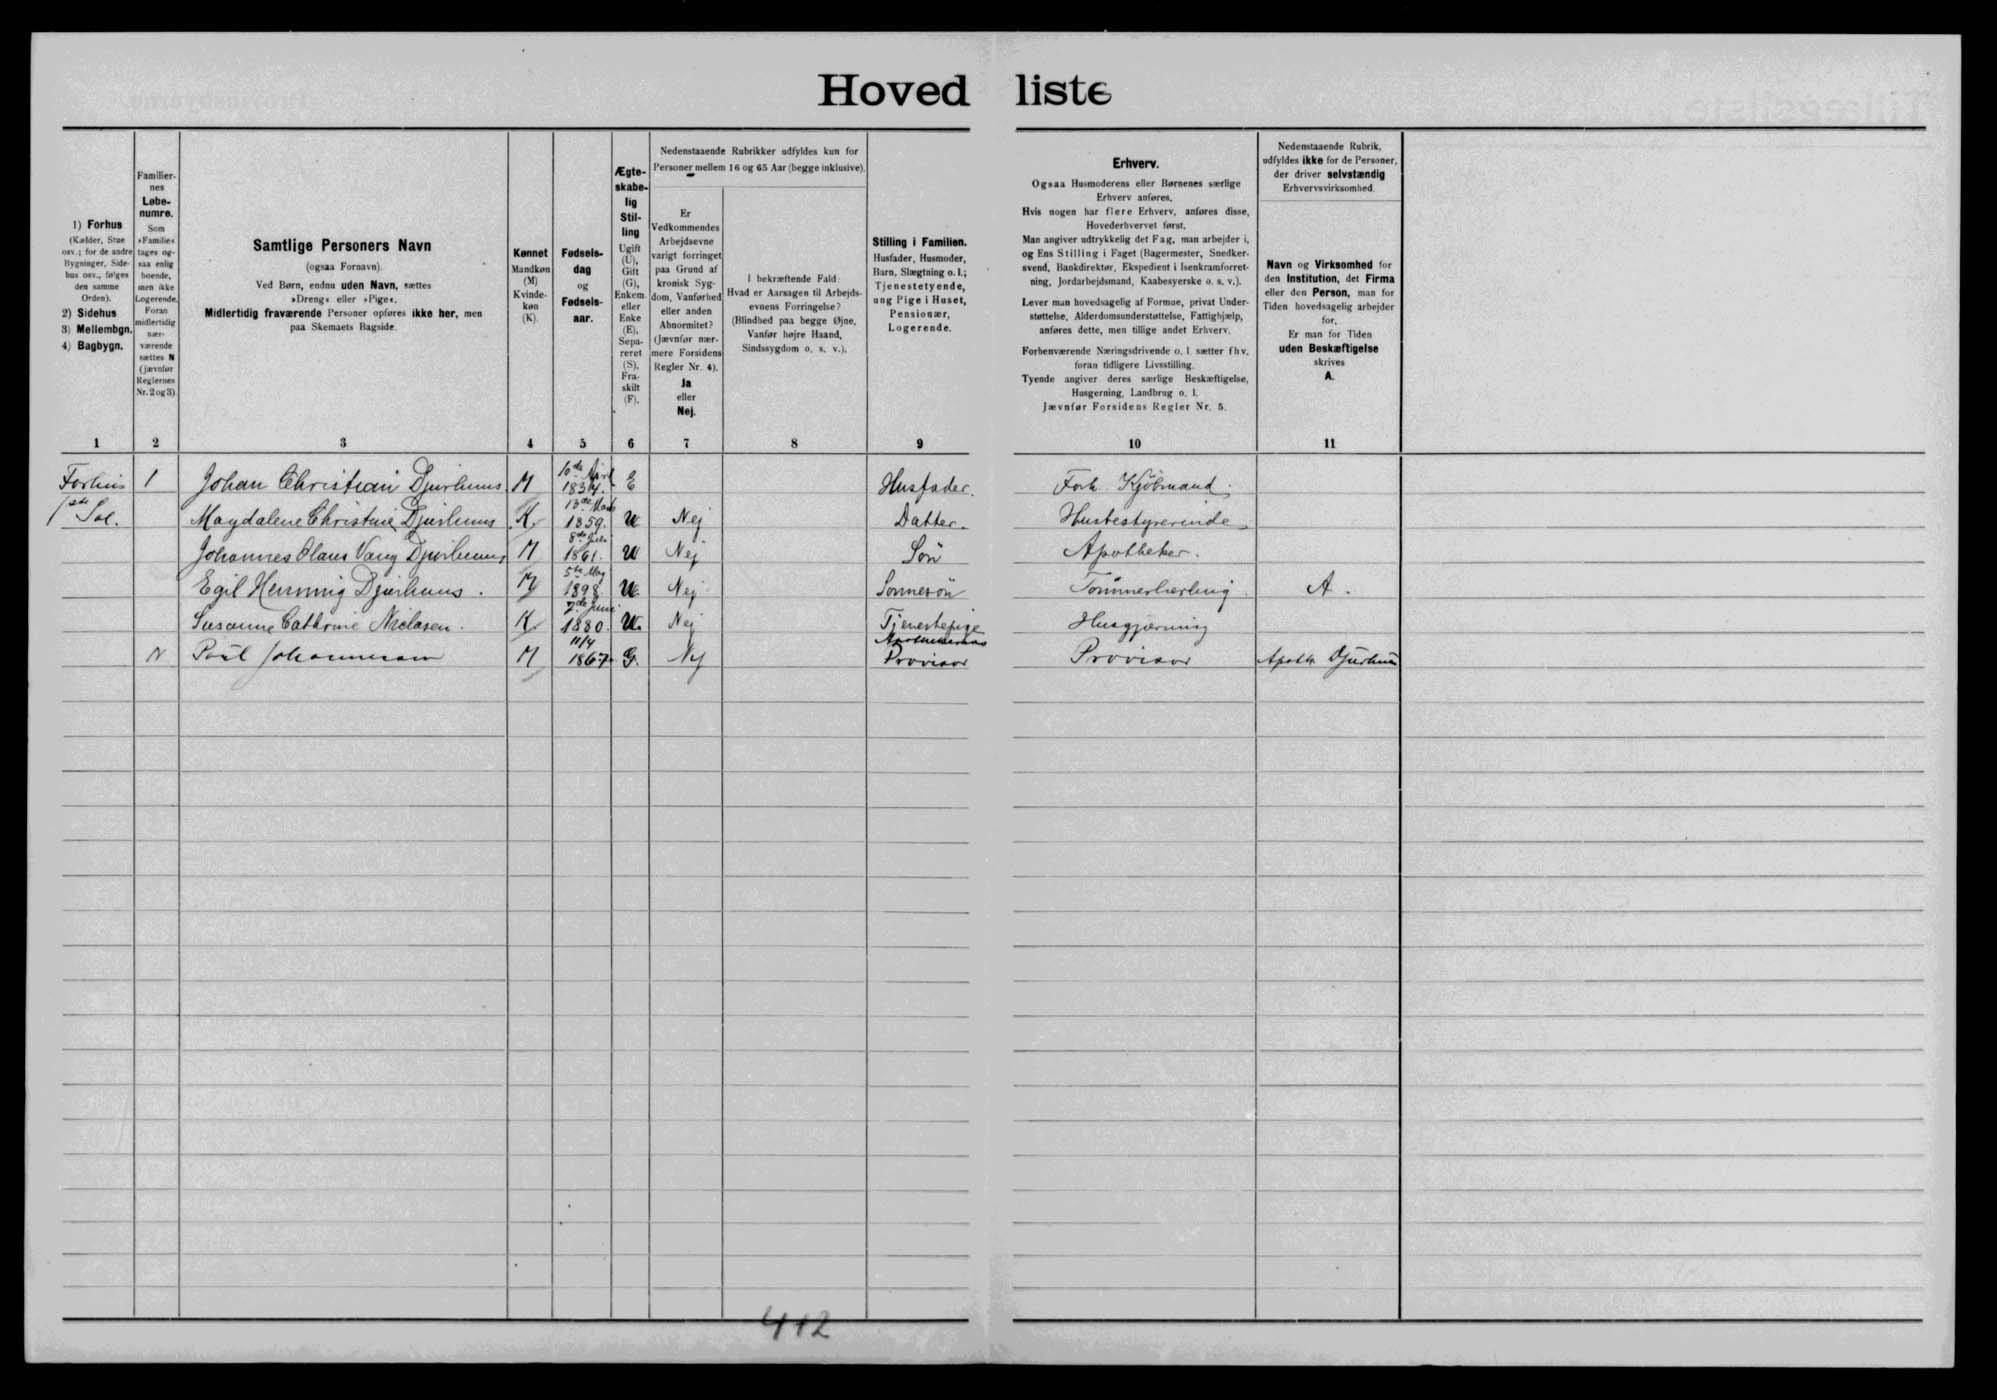 Hovedliste
1) Forhus
(Kælder, Stue
osv.; for de andre
Bygninger, Side-
hus osv., følges
den samme
Orden).
2) Sidehus
3) Mellembgn.
4) Bagbygn.
Familier-
nes
Løbe-
numre.
Som
»Familie«
tages og-
saa enlig
boende,
men ikke
Logerende.
Foran
midlertidig
nær-
værende
sættes N
(jævnfør
Reglernes
Nr. 2 og 3).
Samtlige Personers Navn
(ogsaa Fornavn).
Ved Børn, endnu uden Navn, sættes
»Dreng« eller »Pige«.
Midlertidig fraværende Personer opføres ikke her, men
paa Skemaets Bagside.
Kønnet
Mandkøn
(M)
Kvinde-
køn
(K).
Fødsels-
dag
og
Fødsels-
aar.
Ægte-
skabe-
lig
Stil-
ling
Ugift
(U),
Gift
(G),
Enkem.
eller
Enke
(E),
Sepa-
reret
(S),
Fra-
skilt
(F).
Nedenstaaende Rubrikker udfyldes kun for
Personer mellem 16 og 65 Aar (begge inklusive).
Er
Vedkommendes
Arbejdsevne
varigt forringet
paa Grund af
kronisk Syg-
dom, Vanførhed
eller anden
Abnormitet?
(Jævnfør nær-
mere Forsidens
Regler Nr. 4).
Ja
eller
Nej.
I bekræftende Fald:
Hvad er Aarsagen til Arbejds-
evnens Forringelse?
(Blindhed paa begge Øjne,
Vanfør højre Haand,
Sindssygdom o. s. v.).
Stilling i Familien.
Husfader, Husmoder,
Barn, Slægtning o. l.;
Tjenestetyende,
ung Pige i Huset,
Pensionær,
Logerende.
Erhverv.
Ogsaa Husmoderens eller Børnenes særlige
Erhverv anføres.
Hvis nogen har flere Erhverv, anføres disse,
Hovederhvervet først.
Man angiver udtrykkelig det Fag, man arbejder i,
og Ens Stilling i Faget (Bagermester, Snedker-
svend, Bankdirektør, Ekspedient i Isenkramforret-
ning, Jordarbejdsmand, Kaabesyerske o. s. v.).
Lever man hovedsagelig af Formue, privat Under-
støttelse, Alderdomsunderstøttelse, Fattighjælp,
anføres dette, men tillige andet Erhverv.
Forhenværende Næringsdrivende o. l. sætter fhv.
foran tidligere Livsstilling.
Tyende angiver deres særlige Beskæftigelse,
Husgerning, Landbrug o. l.
Jævnfør Forsidens Regler Nr. 5.
Nedenstaaende Rubrik,
udfyldes ikke for de Personer,
der driver selvstændig
Erhvervsvirksomhed.
Navn og Virksomhed for
den Institution, det Firma
eller den Person, man for
Tiden hovedsagelig arbejder
for.
Er man for Tiden
uden Beskæftigelse
skrives
A.
1 2 3 4 5 6 7 8 9 10 11
Forhus 1 Johan Christian Djurhuus M 1834. E Husfader. Forh. Kjöbmand.
Magdalene Christine Djurhuus K. 13de 1859. U Nej Datter. Husbestyrerinde
Johannes Olaus Vang Djurhuus M 8de Juli 1861. U Nej Sön Apotheker.
Egil Henning Djurhuus. M 5te May 1898. U. Nej Sönnesön Tömmerlærling A.
Susanne Cathrine Nielsen. K. 2de Juni 1880. U. Nej Tjenestepige Husgjerning
N Poul Johannesen M 11/4 1867. G. Nej Provisor Provisor Apoth. Djurhuus
412